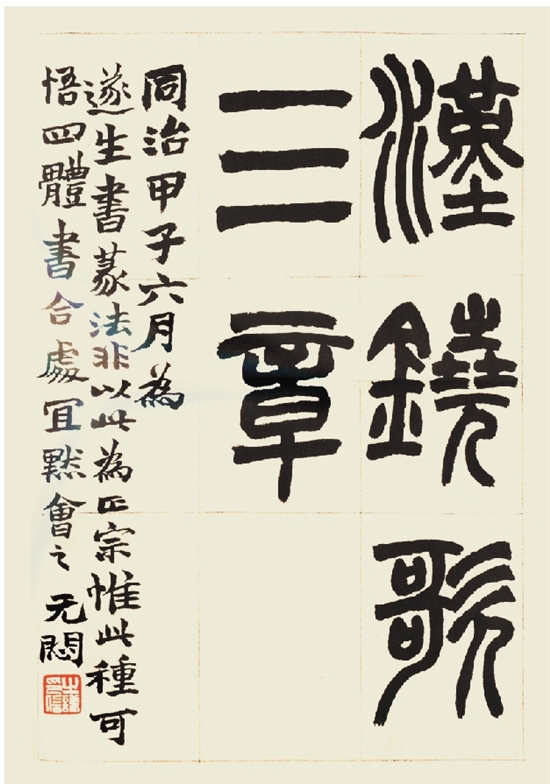 漢鐃歌
三章
同治甲子六月為
遂生書篆法非以此為正宗惟此種可
悟四體書合處宜默會之 无悶